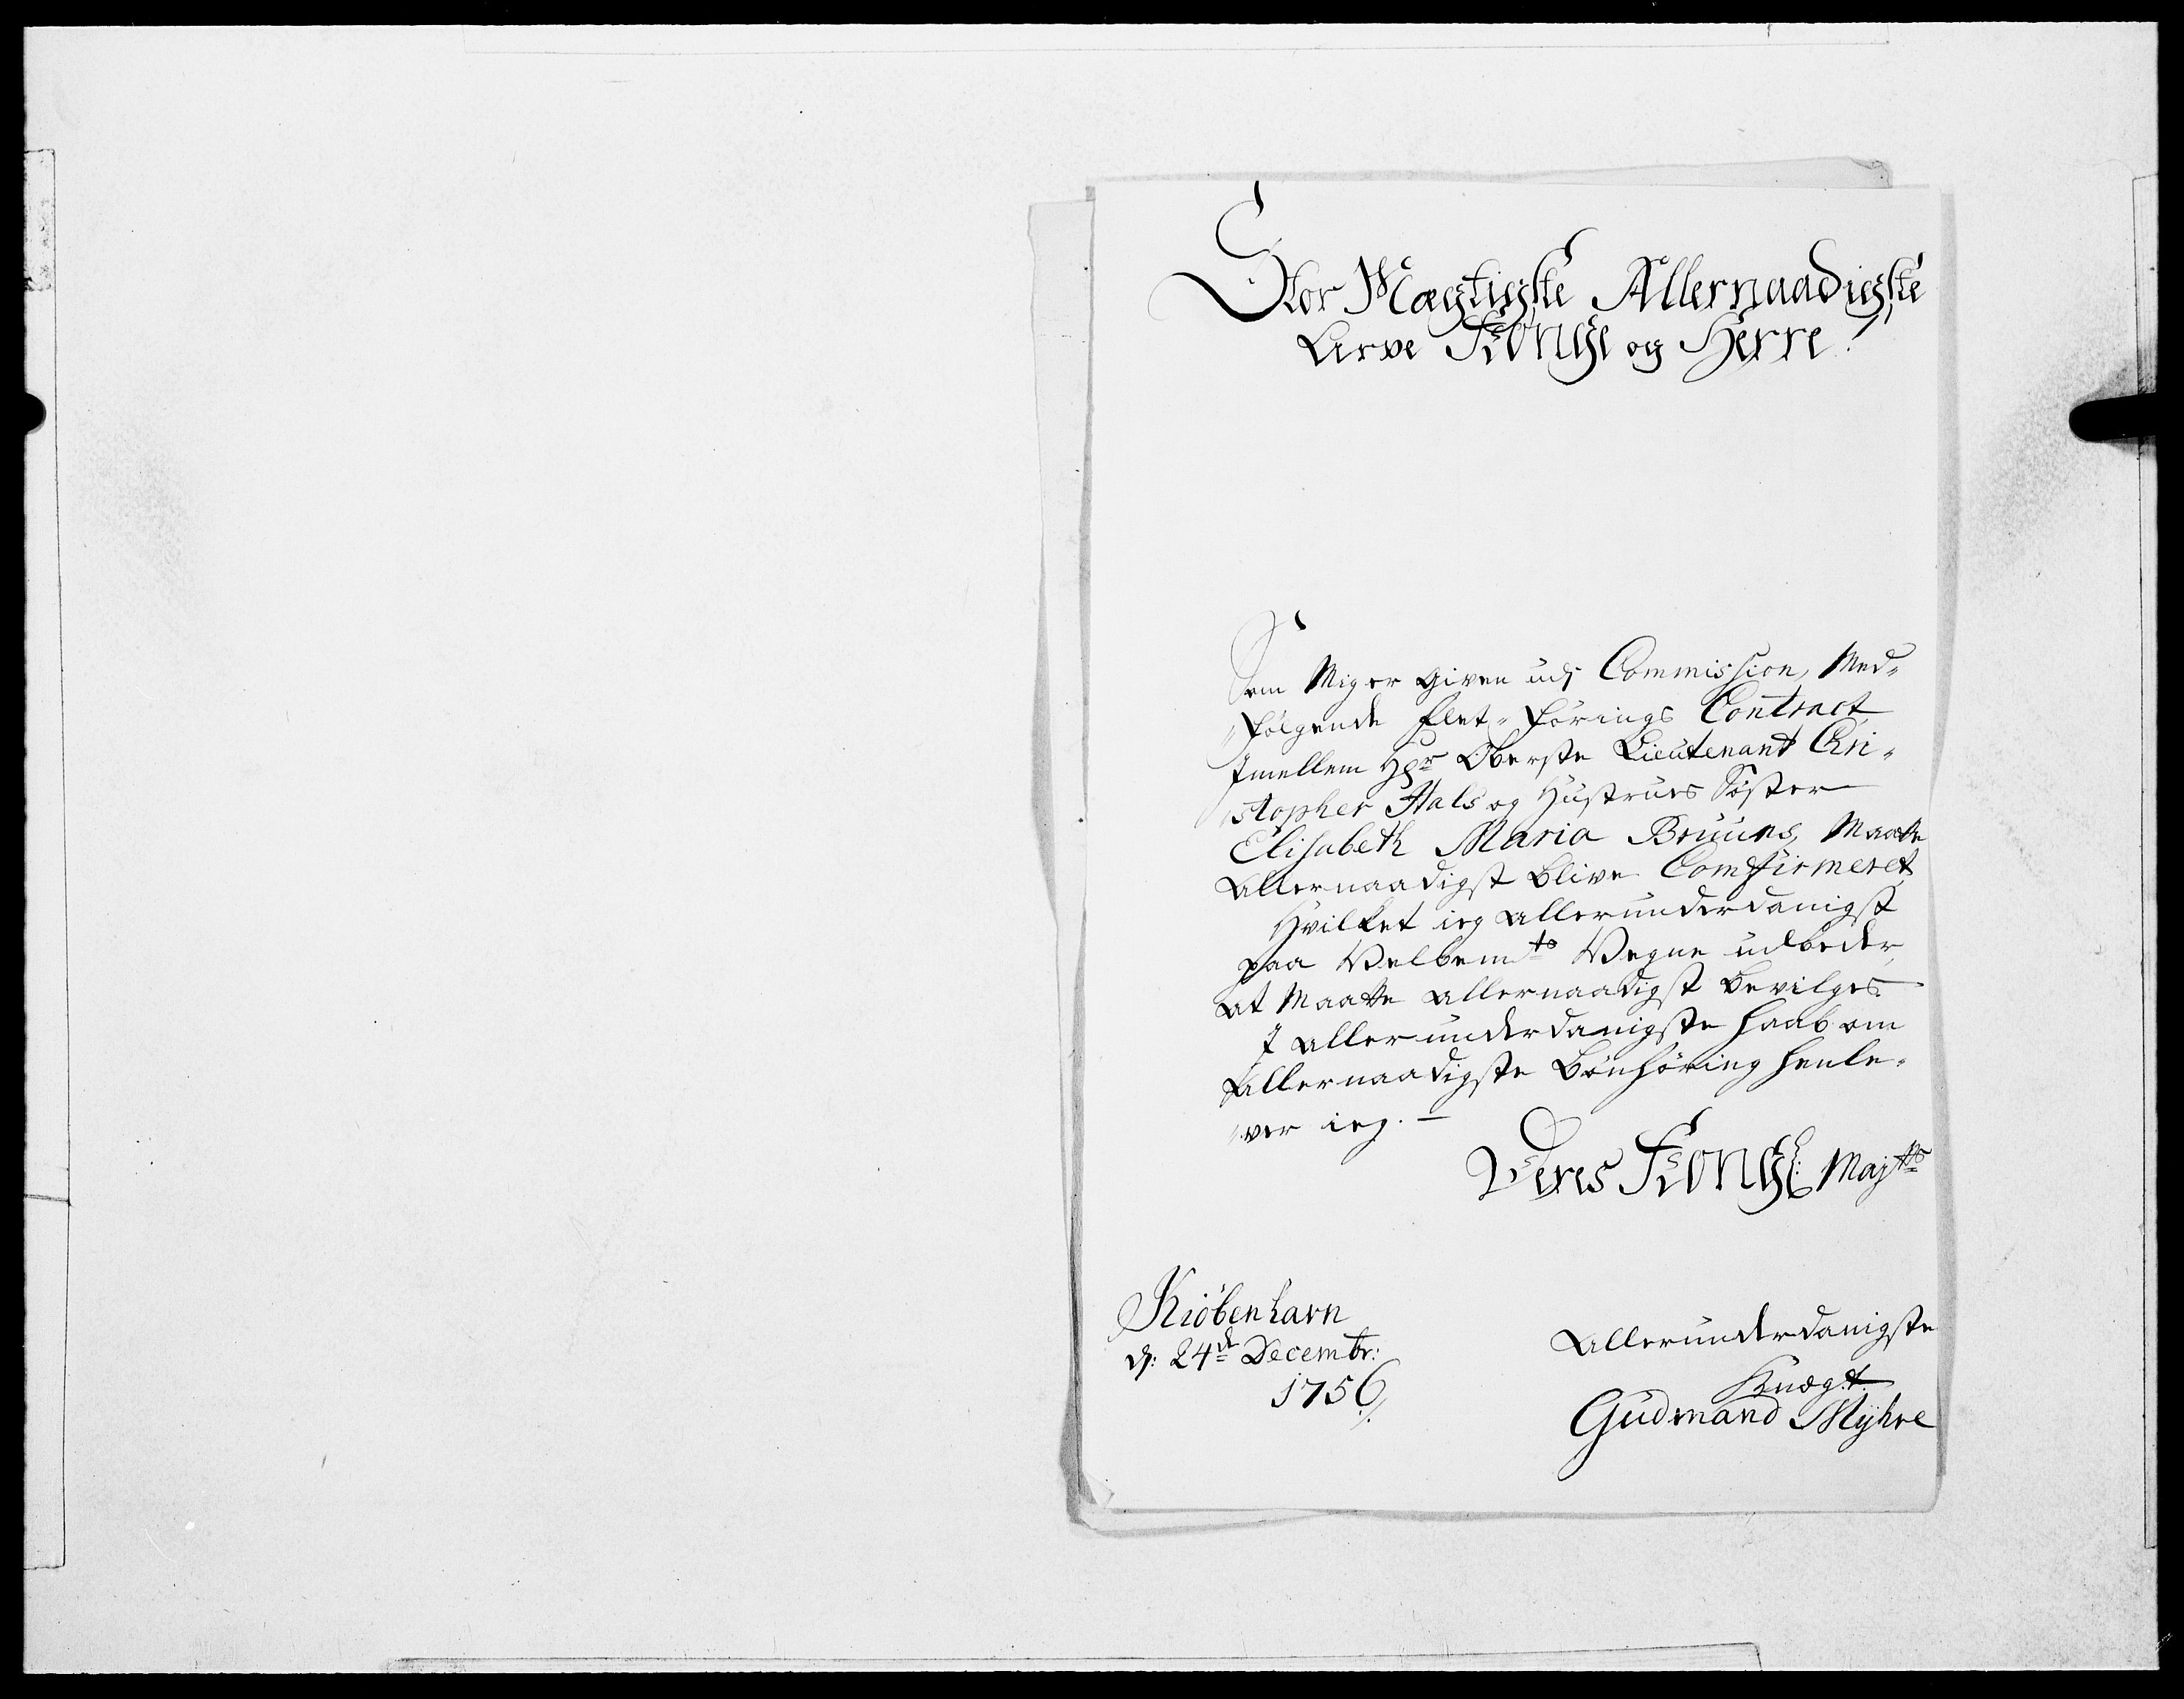 Stor Mægtigste Allernaadigste
Arve Konge og Herre!
Som Mig er given udj Commission, Med-
"følgende Flet-förings Contract
Jmellem Hr Oberste Lieutenant Chri-
"stopher Hals og Hustrues Söster
Elisabeth Maria Bruuns, Maatte
Allernaadigst blive Comfirmeret
Hvilket ieg allerunderdanigst
paa Velbemts Vegne udbeder,
at Maatte allernaadigst bevilges.
J allerunderdanigste Haab om
Allernaadigste Bönhöring henle-
"ver ieg. —
Deres Kongl: Majts
Kiöbenhavn
d: 24de Decembr:
1756
Allerunderdanigste
Knegt
Gudmand Mÿhre